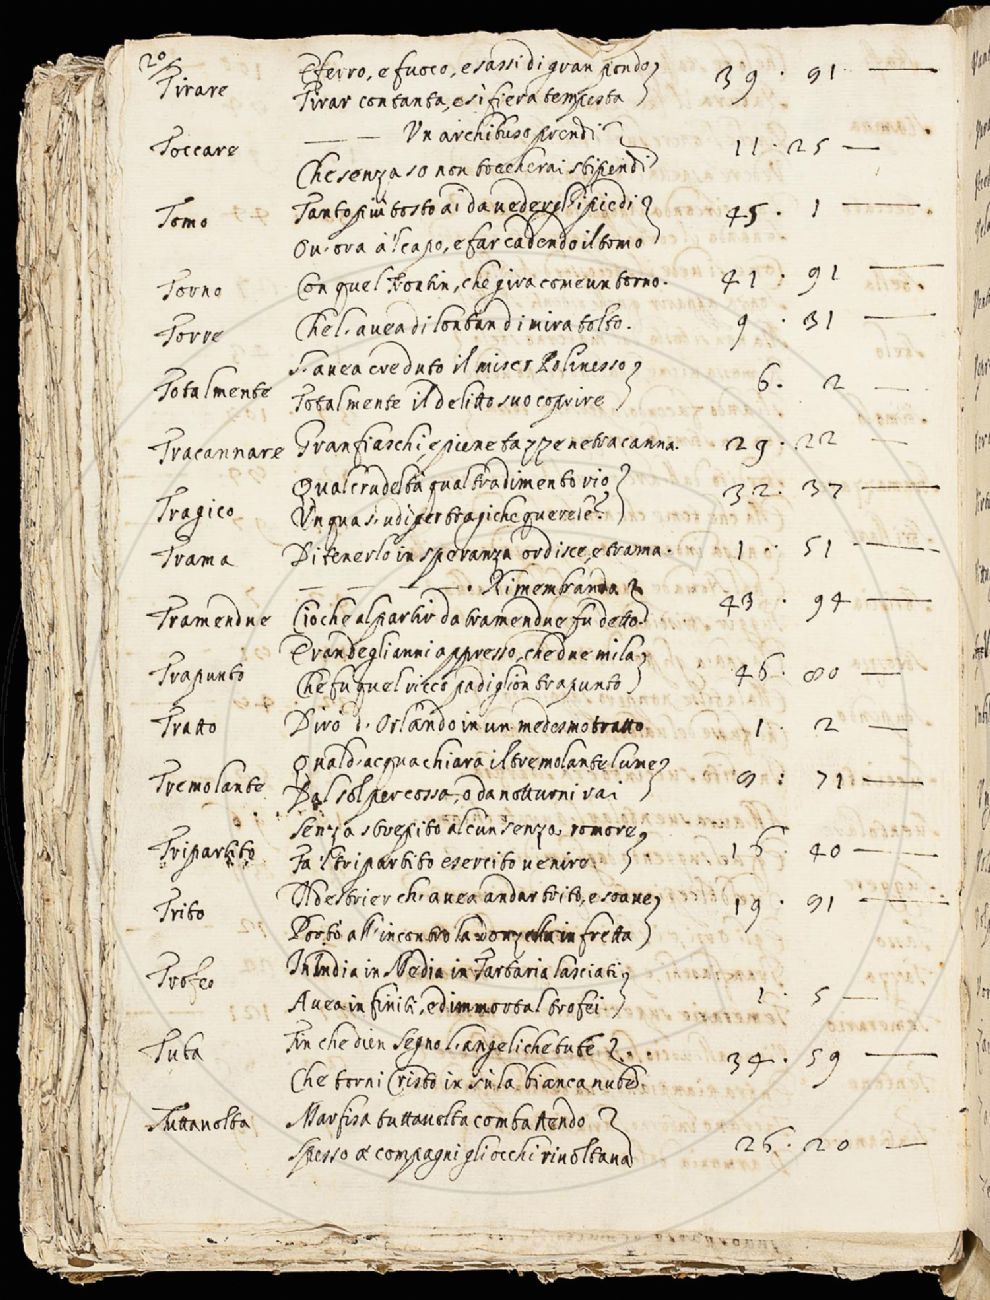 20
Tirare E ferro, e fuoco, e sassi di gran pondo 39 · 91
Tirar con tanta, e sì fiera tempesta
Vn archibuso prendi
Toccare 11 · 25
Che senza so non toccherai stipendi
Tomo Tanto piu tosto a i da ueder gl'i piedi 45 · 1
Ou'ora à 'l capo, e far cadendo il tomo
Torno Con quel frontin, che gira come un torno. 41 · 91
Torre Che l'auea di lontan di mira tolto. 9 · 31
S'auea creduto il miser Polinesso
Totalmente Totalmente il delitto suo coprire 6 · 2
Tracannare Gran fiaschi e piene tazze ne tracanna. 29 · 22
Qual crudeltà qual tradimento rio
Tragico Vnqua s'udì per tragiche querele? 32 · 37
Trama Di tenerlo in speranza ordisce, e trama. 1 · 51
Rimembranda
Tramendue Cio che al partir da tramendue fu detto. 43 · 94
Eran degli anni appresso, che due mila
Trapunto Che fu quel ricco padiglion trapunto 46 · 80
Tratto Dirò d'Orlando in un medesmo tratto 1 · 2
Qual d'acqua chiara il tremolante lume
Tremolante Dal sol percossa, o da notturni rai 8 : 71
Senza strepito alcun senza romore
Tripartito Fa 'l tripartito esercito uenire. 16 · 40
Il destrier ch'auea andar trito, e soaue
Trito Portò all'incontro la donzella in fretta 19 · 91
In India in Media in Tartaria lasciati
Trofeo Auea infiniti, ed immortal trofei 1 · 5
Tuba Fin che dien segno l'angeliche tube 34 · 59
Che torni Cristo in sù la bianca nube
Tuttauolta Marfisa tuttauolta combattendo
Spesso a' compagni gli occhi riuoltaua 26 · 20